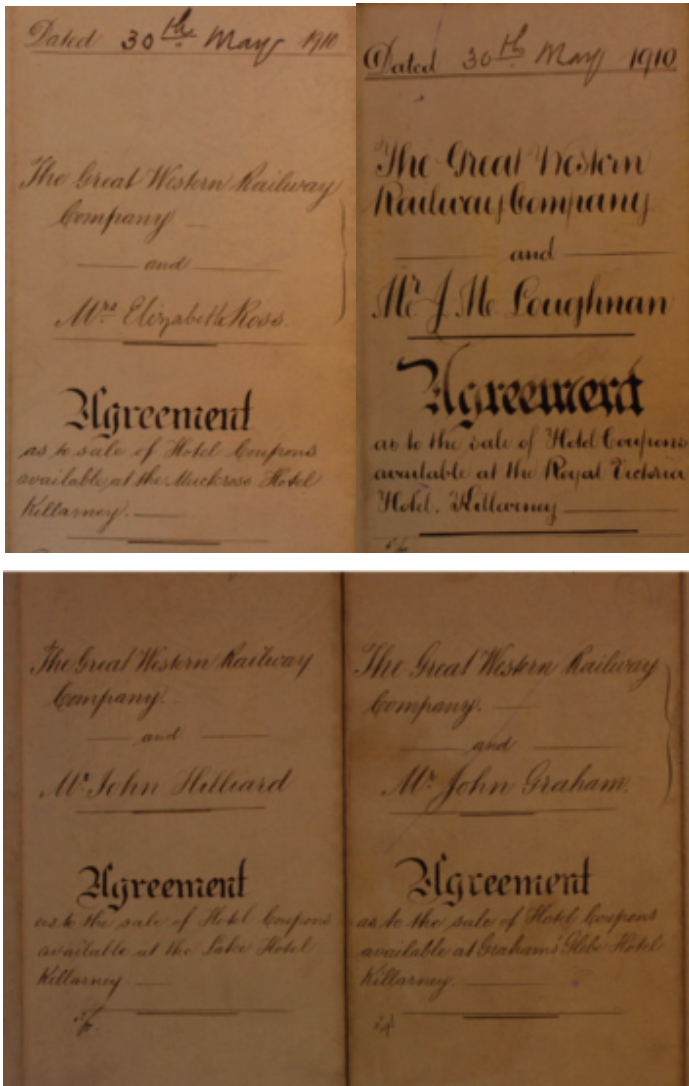 Dated 30th May 1910
The Great Western Railway
Company
and
Mrs Elizabeth Ross.
Agreement
as to sale of Hotel Coupons
available at the Muckross Hotel
Killarney.
Dated 30th May 1910
The Great Western
Railway Company
and
Mr. J. Mc Loughnan
Agreement
as to the sale of Hotel Coupons
available at the Royal Victoria
Hotel, Killarney
The Great Western Railway
Company.
and
Mr. John Hilliard
Agreement
as to the sale of Hotel Coupons
available at the Lake Hotel
Killarney
The Great Western Railway
Company.
and
Mr. John Graham.
Agreement
as to the sale of Hotel Coupons
available at Graham's Glebe Hotel
Killarney.